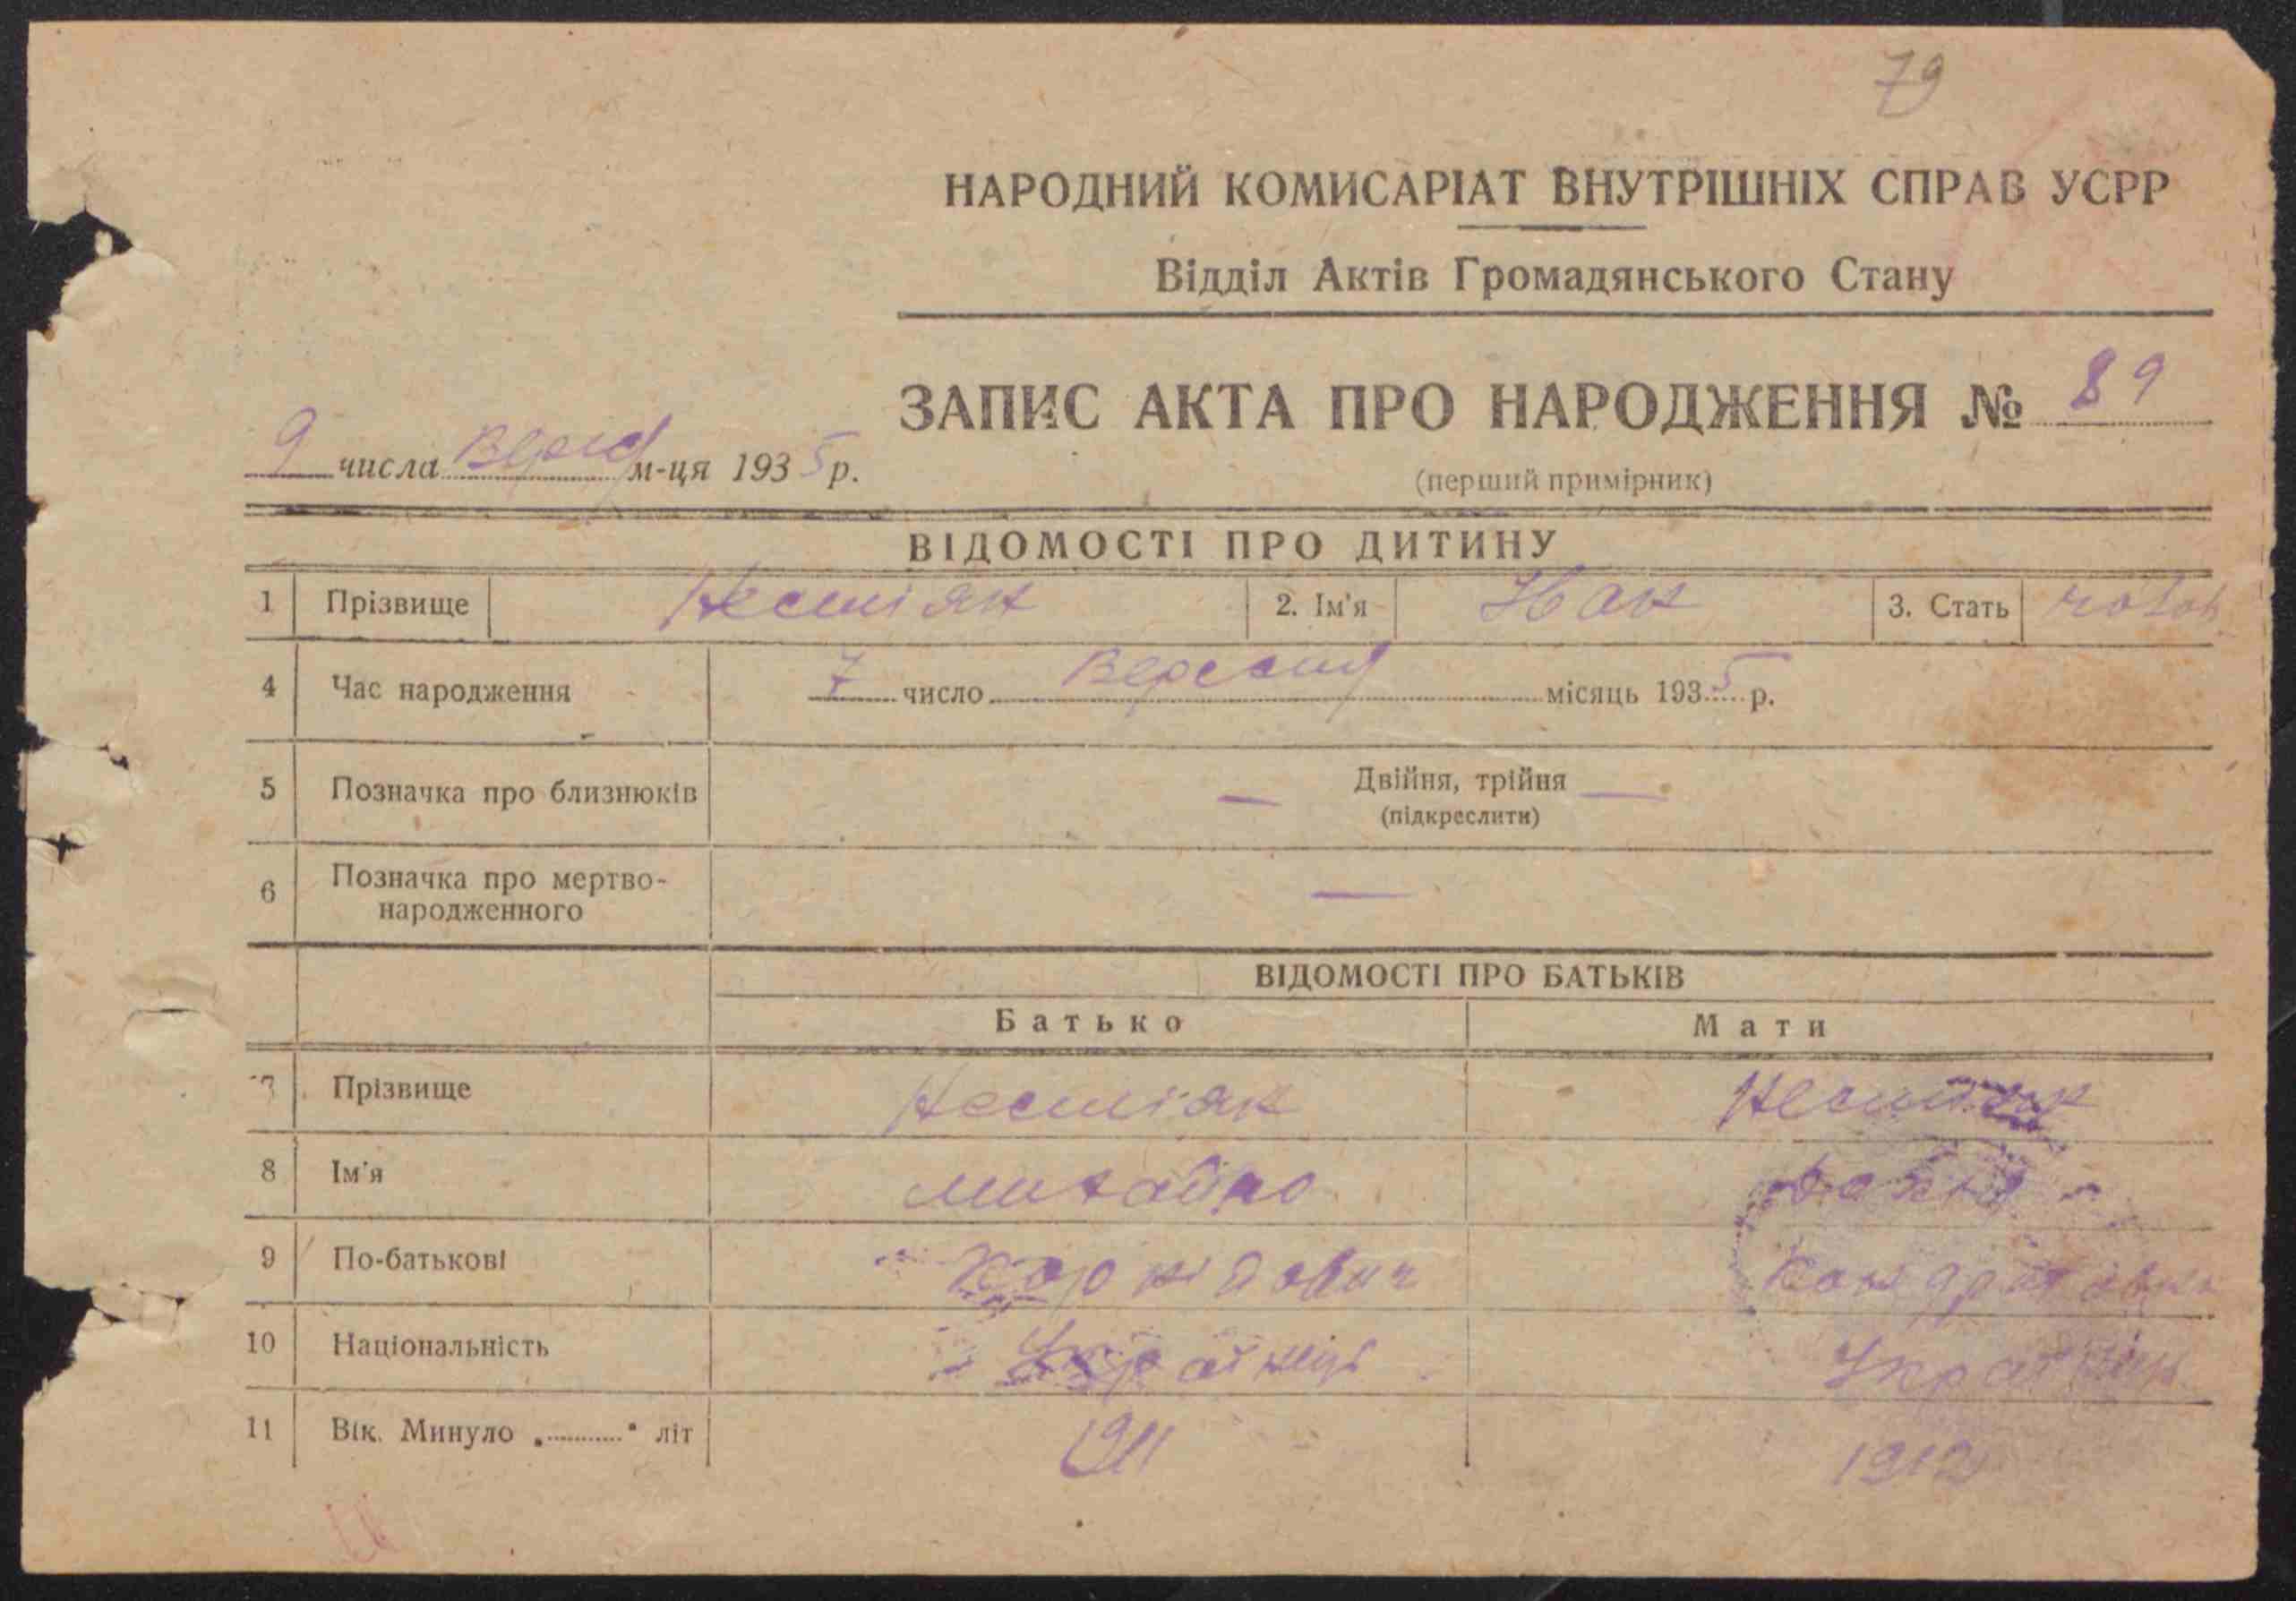 79
НАРОДНИЙ КОМИСАРІАТ ВНУТРІШНІХ СПРАВ УСРР
Відділ Актів Громадянського Стану
ЗАПИС АКТА ПРО НАРОДЖЕННЯ № 89
9 числа м-ця 1935 р.
(перший примірник)
ВІДОМОСТІ ПРО ДИТИНУ
1 Прізвище 2. Ім'я 3. Стать
4 Час народження 7 число Вересня місяць 1935 р.
5 Позначка про близнюків — Двійня, трійня —
(підкреслити)
6 Позначка про мертво-
народженного —
ВІДОМОСТІ ПРО БАТЬКІВ
Батько Мати
7 Прізвище
8 Ім'я Михайло
9 По-батькові
10 Національність
11 Вік. Минуло „..........“ літ 1911 1912